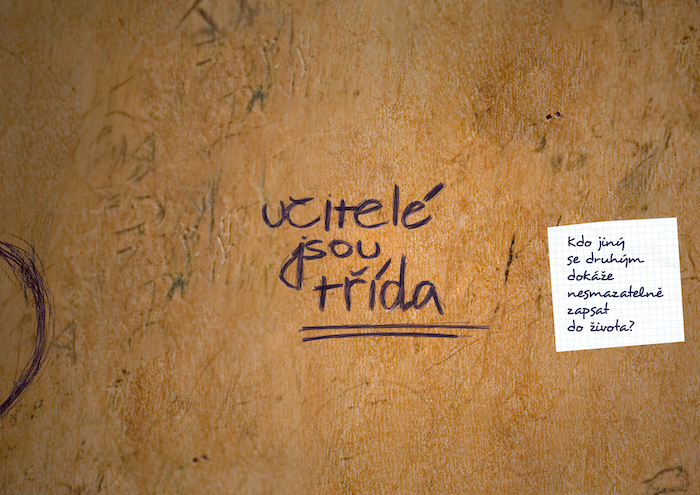 učitelé
jsou
třída
Kdo jiný
se druhým
dokáže
nesmazatelně
zapsat
do života?